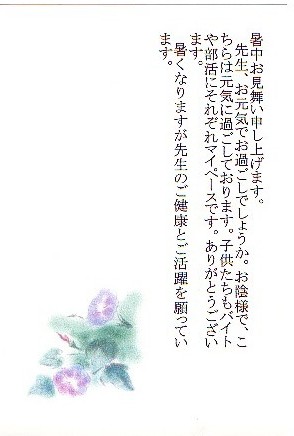 暑中お見舞い申し上げます。
先生、お元気でお過ごしでしょうか。お陰様で、こ
ちらは元気に過ごしております。子供たちもバイト
や部活にそれぞれマイペースです。ありがとうござい
ます。
暑くなりますが先生のご健康とご活躍を願ってい
ます。